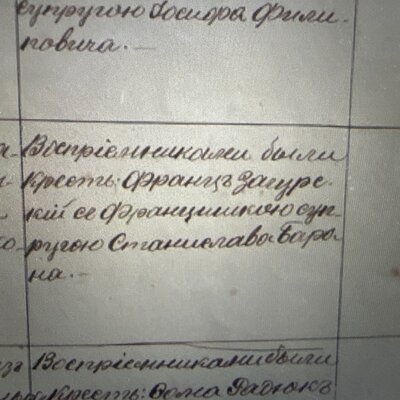 супругою Іосифа Фили-
повича.—
а- Воспріемниками были
Крестъ: Францъ Загурс-
кій съ Францишкою суп-
ко- ругою Станислава Баро-
на.—
Воспріемниками были
Крестъ: Ѳома